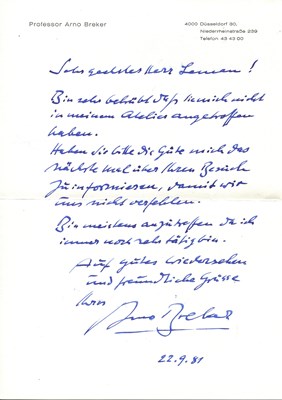 Professor Arno Breker
4000 Düsseldorf 30,
Niederrheinstraße 239
Telefon 43 43 80
Sehr geehrter Herr Leman !
Bin sehr betrübt daß Sie mich nicht
in meinem Atelier angetroffen
haben.
Haben Sie bitte die Güte mich das
nächste Mal über Ihren Besuch
zu informieren, damit wir
uns nicht verfehlen.
Bin meistens anzutreffen da ich
immer noch sehr tätig bin.
Auf gutes Wiedersehen
und freundliche Grüsse
Ihres
Arno Breker
22.9.81